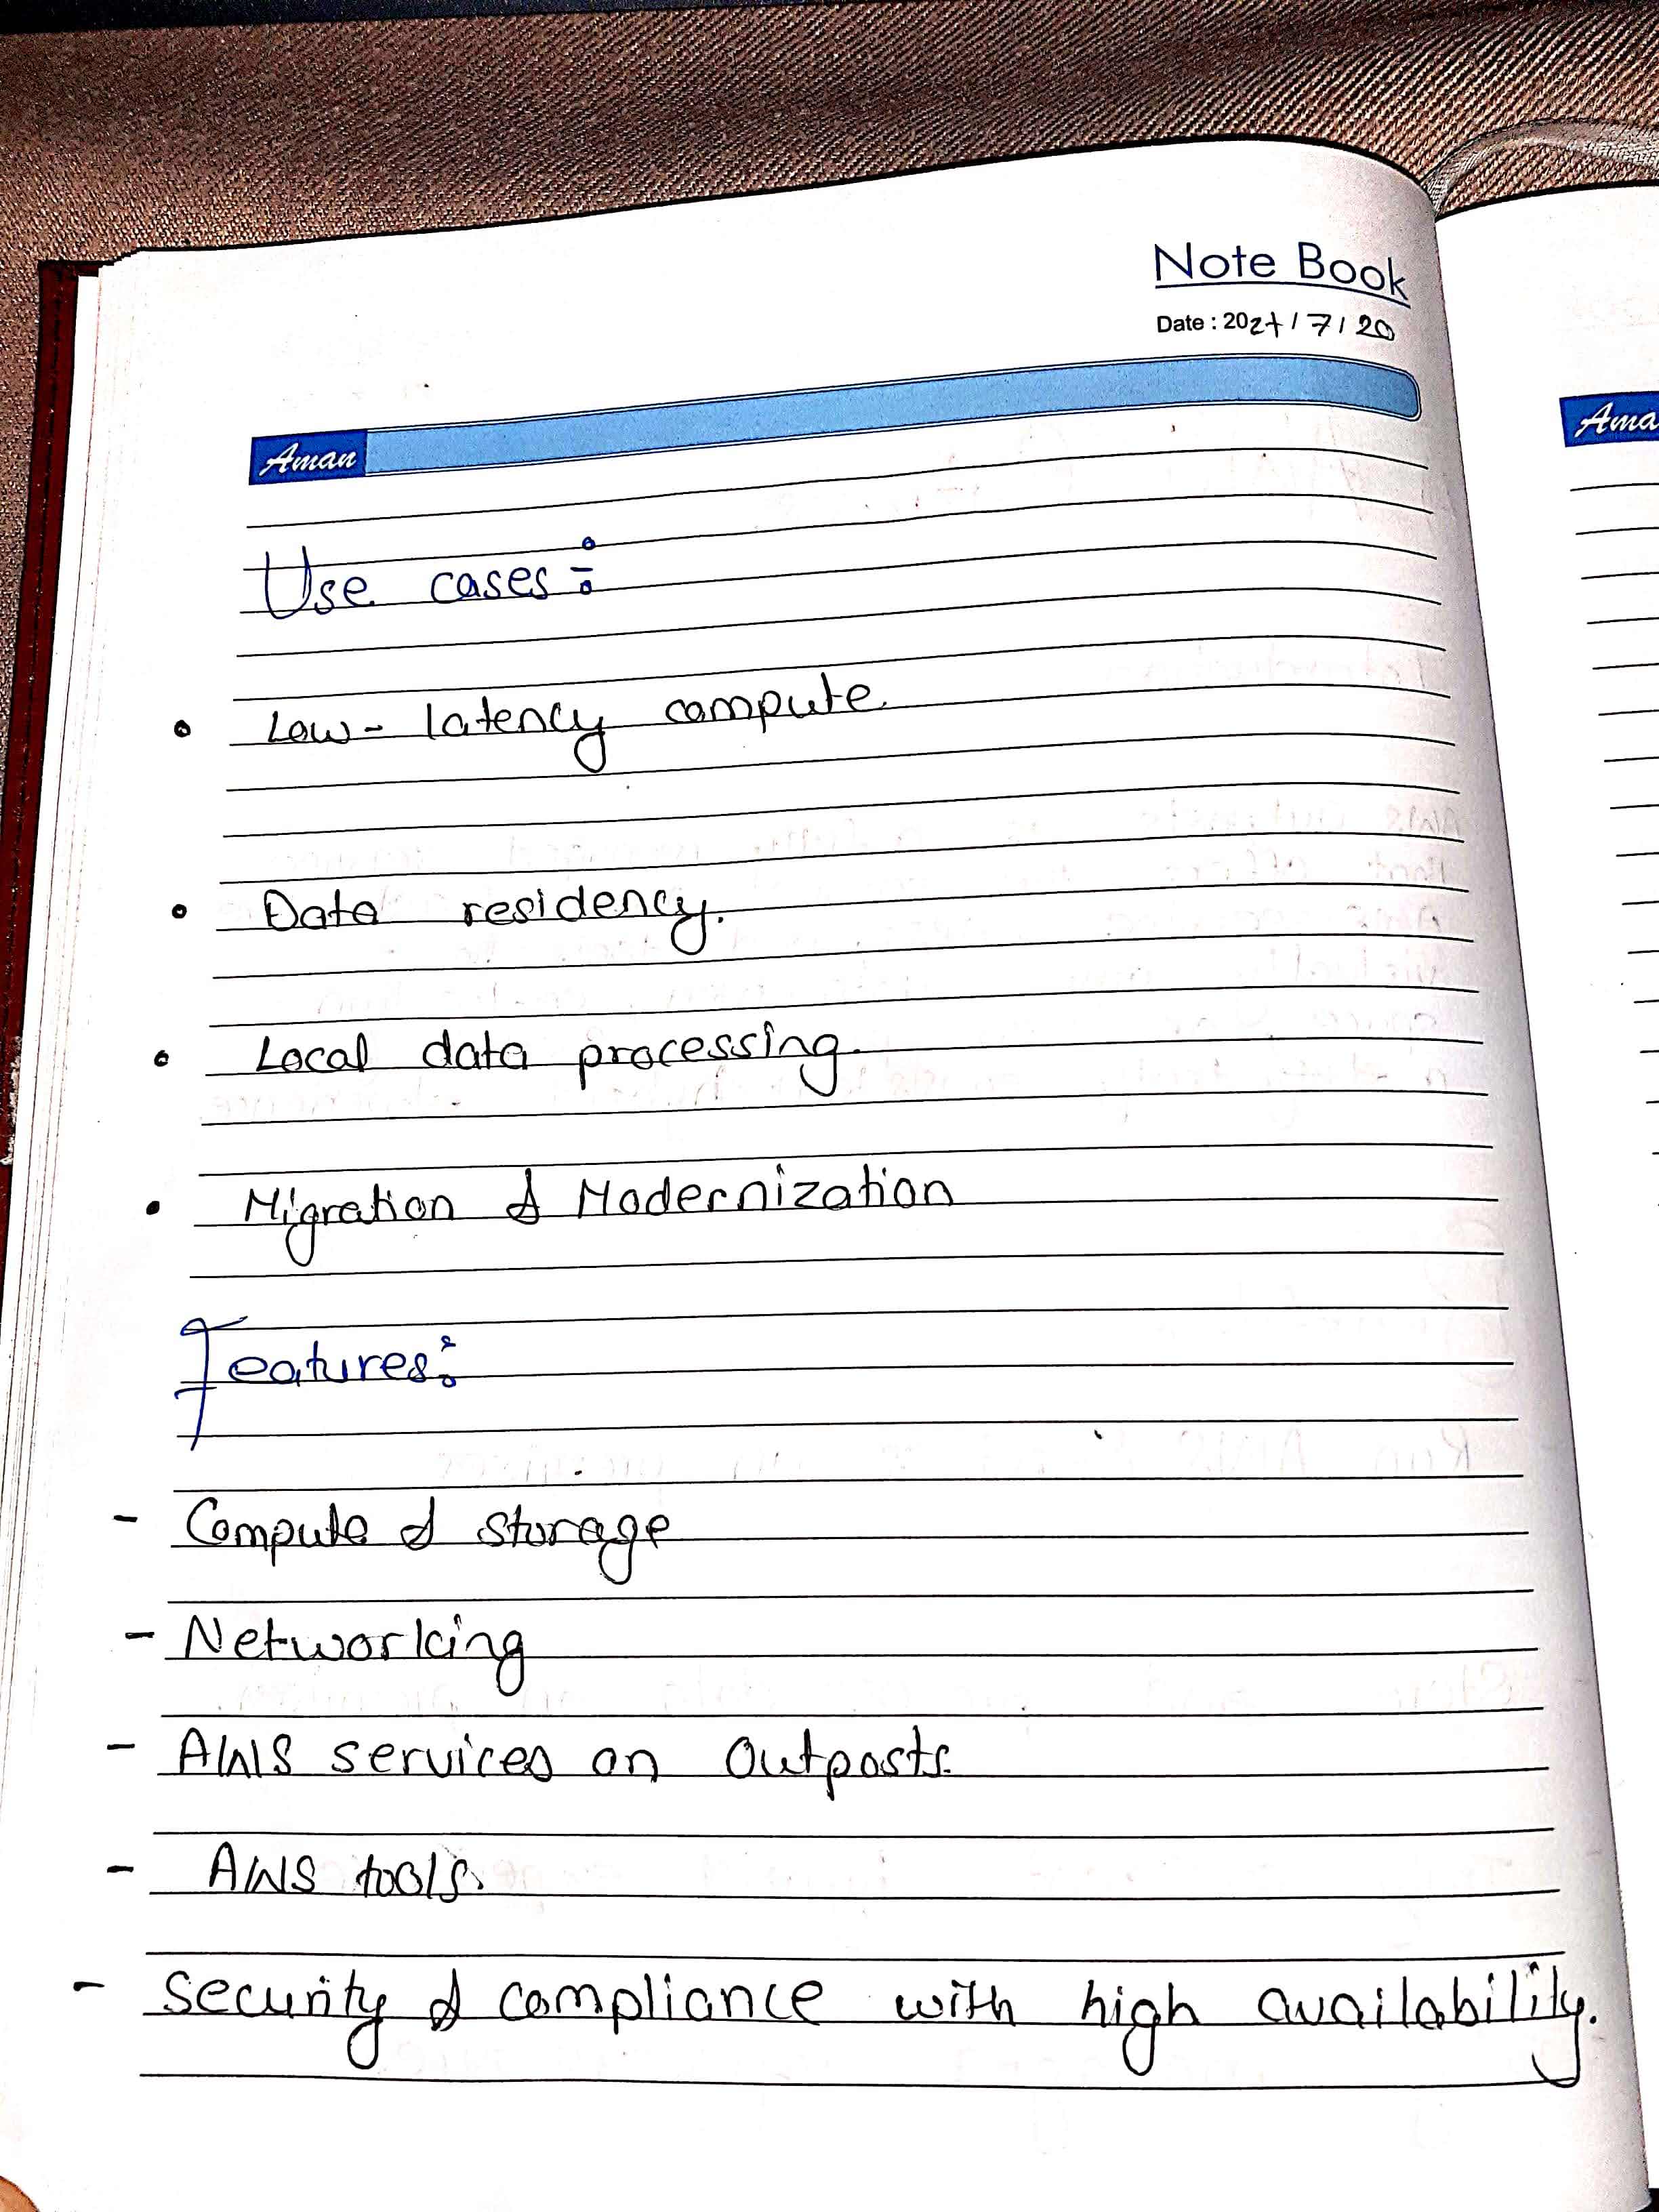 Note Book
Date : 2024 / 7 / 20
Aman
Use cases :-
• Low - latency compute.
• Data residency.
• Local data processing.
• Migration & Modernization
Features:
- Compute & storage
- Networking
- AWS services on Outposts.
- AWS tools.
- Security & compliance with high availability.
Ama